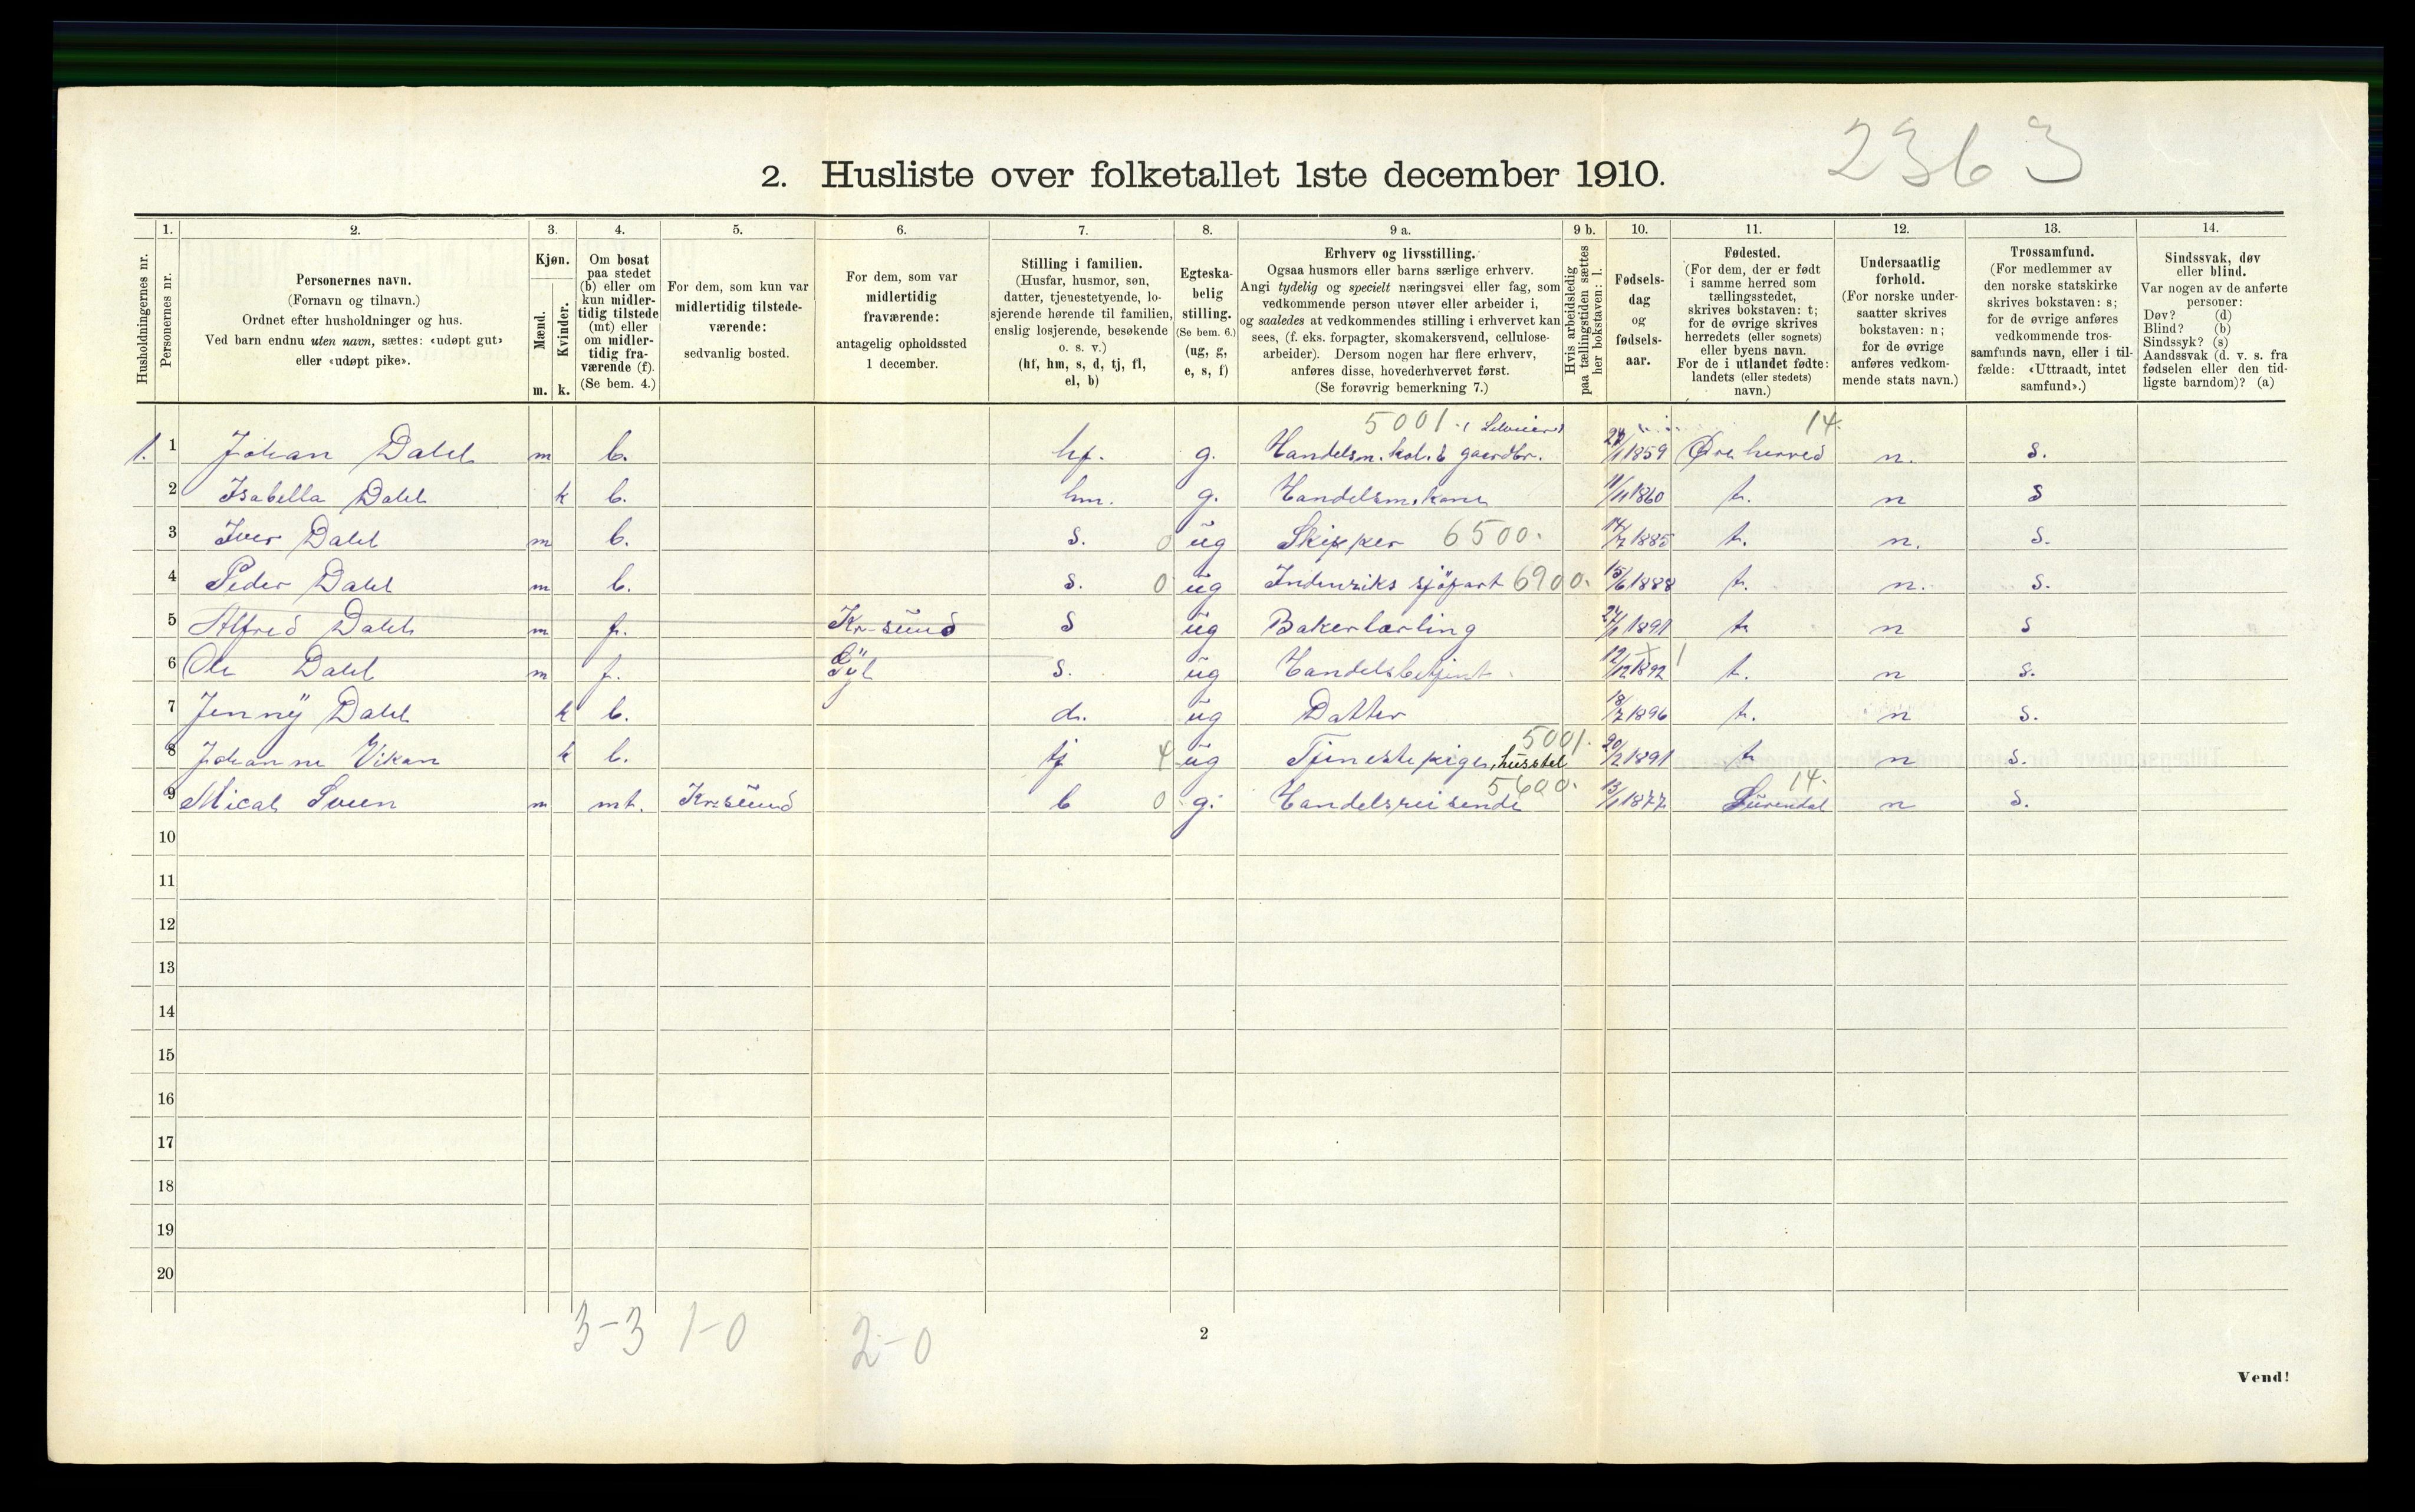 2363
2. Husliste over folketallet 1ste december 1910.
Husholdningernes nr.
1. Personernes nr.
2. Personernes navn. (Fornavn og tilnavn.) Ordnet efter husholdninger og hus. Ved barn endnu uten navn, sættes: «udøpt gut» eller «udøpt pike».
3. Kjøn. Mænd. m. Kvinder. k.
4. Om bosat paa stedet (b) eller om kun midlertidig tilstede (mt) eller om midlertidig fraværende (f). (Se bem. 4.)
5. For dem, som kun var midlertidig tilstedeværende: sedvanlig bosted.
6. For dem, som var midlertidig fraværende: antagelig opholdssted 1 december.
7. Stilling i familien. (Husfar, husmor, søn, datter, tjenestetyende, losjerende hørende til familien, enslig losjerende, besøkende o. s. v.) (hf, hm, s, d, tj, fl, el, b)
8. Egteskabelig stilling. (Se bem. 6.) (ug, g, e, s, f)
9 a. Erhverv og livsstilling. Ogsaa husmors eller barns særlige erhverv. Angi tydelig og specielt næringsvei eller fag, som vedkommende person utøver eller arbeider i, og saaledes at vedkommendes stilling i erhvervet kan sees, (f. eks. forpagter, skomakersvend, cellulosearbeider). Dersom nogen har flere erhverv, anføres disse, hovederhvervet først. (Se forøvrig bemerkning 7.)
9 b. Hvis arbeidsledig paa tællingstiden sættes her bokstaven: l.
10. Fødselsdag og fødselsaar.
11. Fødested. (For dem, der er født i samme herred som tællingsstedet, skrives bokstaven: t; for de øvrige skrives herredets (eller sognets) eller byens navn. For de i utlandet fødte: landets (eller stedets) navn.)
12. Undersaatlig forhold. (For norske undersaatter skrives bokstaven: n; for de øvrige anføres vedkommende stats navn.)
13. Trossamfund. (For medlemmer av den norske statskirke skrives bokstaven: s; for de øvrige anføres vedkommende trossamfunds navn, eller i tilfælde: «Uttraadt, intet samfund».)
14. Sindssvak, døv eller blind. Var nogen av de anførte personer: Døv? (d) Blind? (b) Sindssyk? (s) Aandssvak (d. v. s. fra fødselen eller den tidligste barndom)? (a)
5001. 14.
1. 1 Johan Dahl m b. hf. g. Handelsm. kol. & gaardbr. 1859 Øre herred n. s.
2 Isabella Dahl k b. hm. g. Handelsm. kone 11/11 1860 t. n s
3 Iver Dahl m b. s. 0 ug Skipper 6500. 14/7 1885 t. n. s.
4 Peder Dahl m b. s. 0 ug Indenriks sjöfart 6900. 15/6 1888 t. n. s.
5 Alfred Dahl m f. Kr-sund s ug Bakerlærling 24/1 1891 t n s
6 Ole Dahl m f. s. ug Handelsbetjent 12/12 1892 t. n s.
7 Jenny Dahl k b. d. ug Datter 18/7 1896 t. n s.
5001.
8 Johanne Vikan k b. tj 4 ug Tjenestepige, husstel 20/2 1891 t n s.
5600. 14.
9 Mical Sveen m mt. Kr-sund b 0 g. Handelsreisende 13/1 1877 Surendal n s.
10
11
12
13
14
15
16
17
18
19
20
3-3 1-0 2-0
2
Vend!